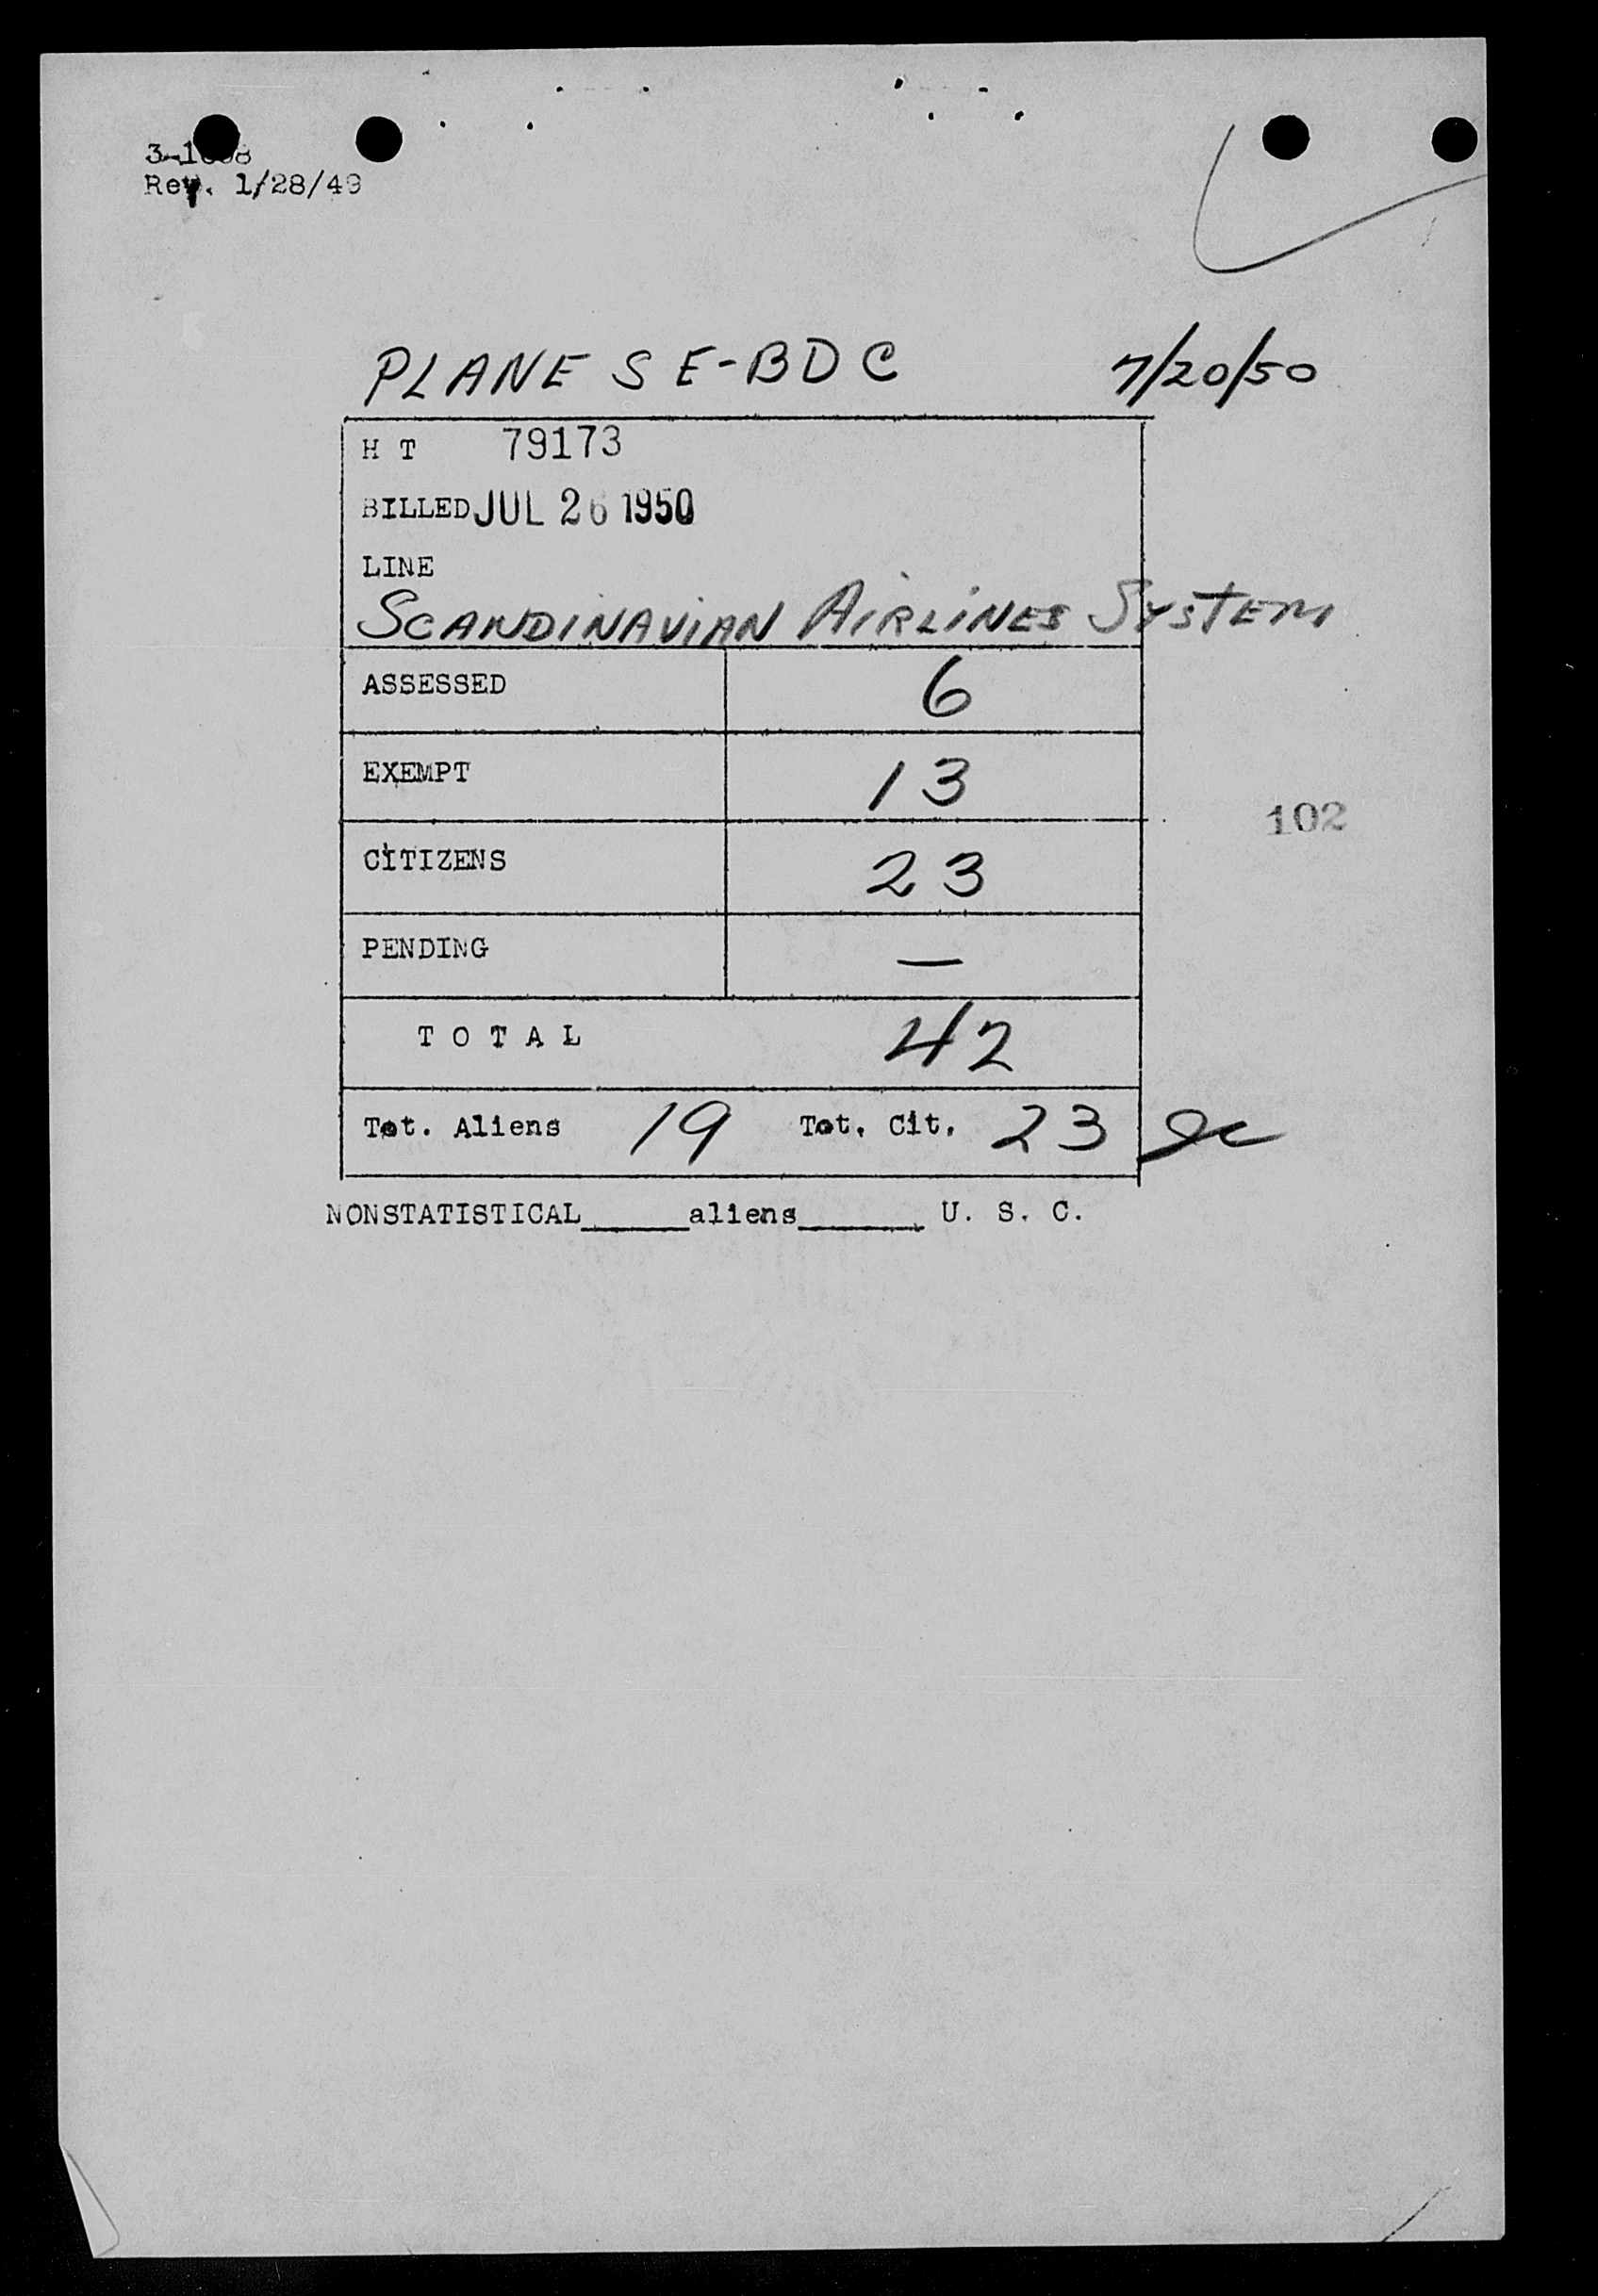 Rev. 1/28/49
PLANE SE-BDC 7/20/50
H T 79173
BILLED JUL 26 1950
LINE
SCANDINAVIAN AIRLINES SYSTEM
ASSESSED 6
EXEMPT 13
102
CITIZENS 23
PENDING —
TOTAL 42
Tot. Aliens 19 Tot. Cit. 23
NONSTATISTICAL______aliens_______ U. S. C.